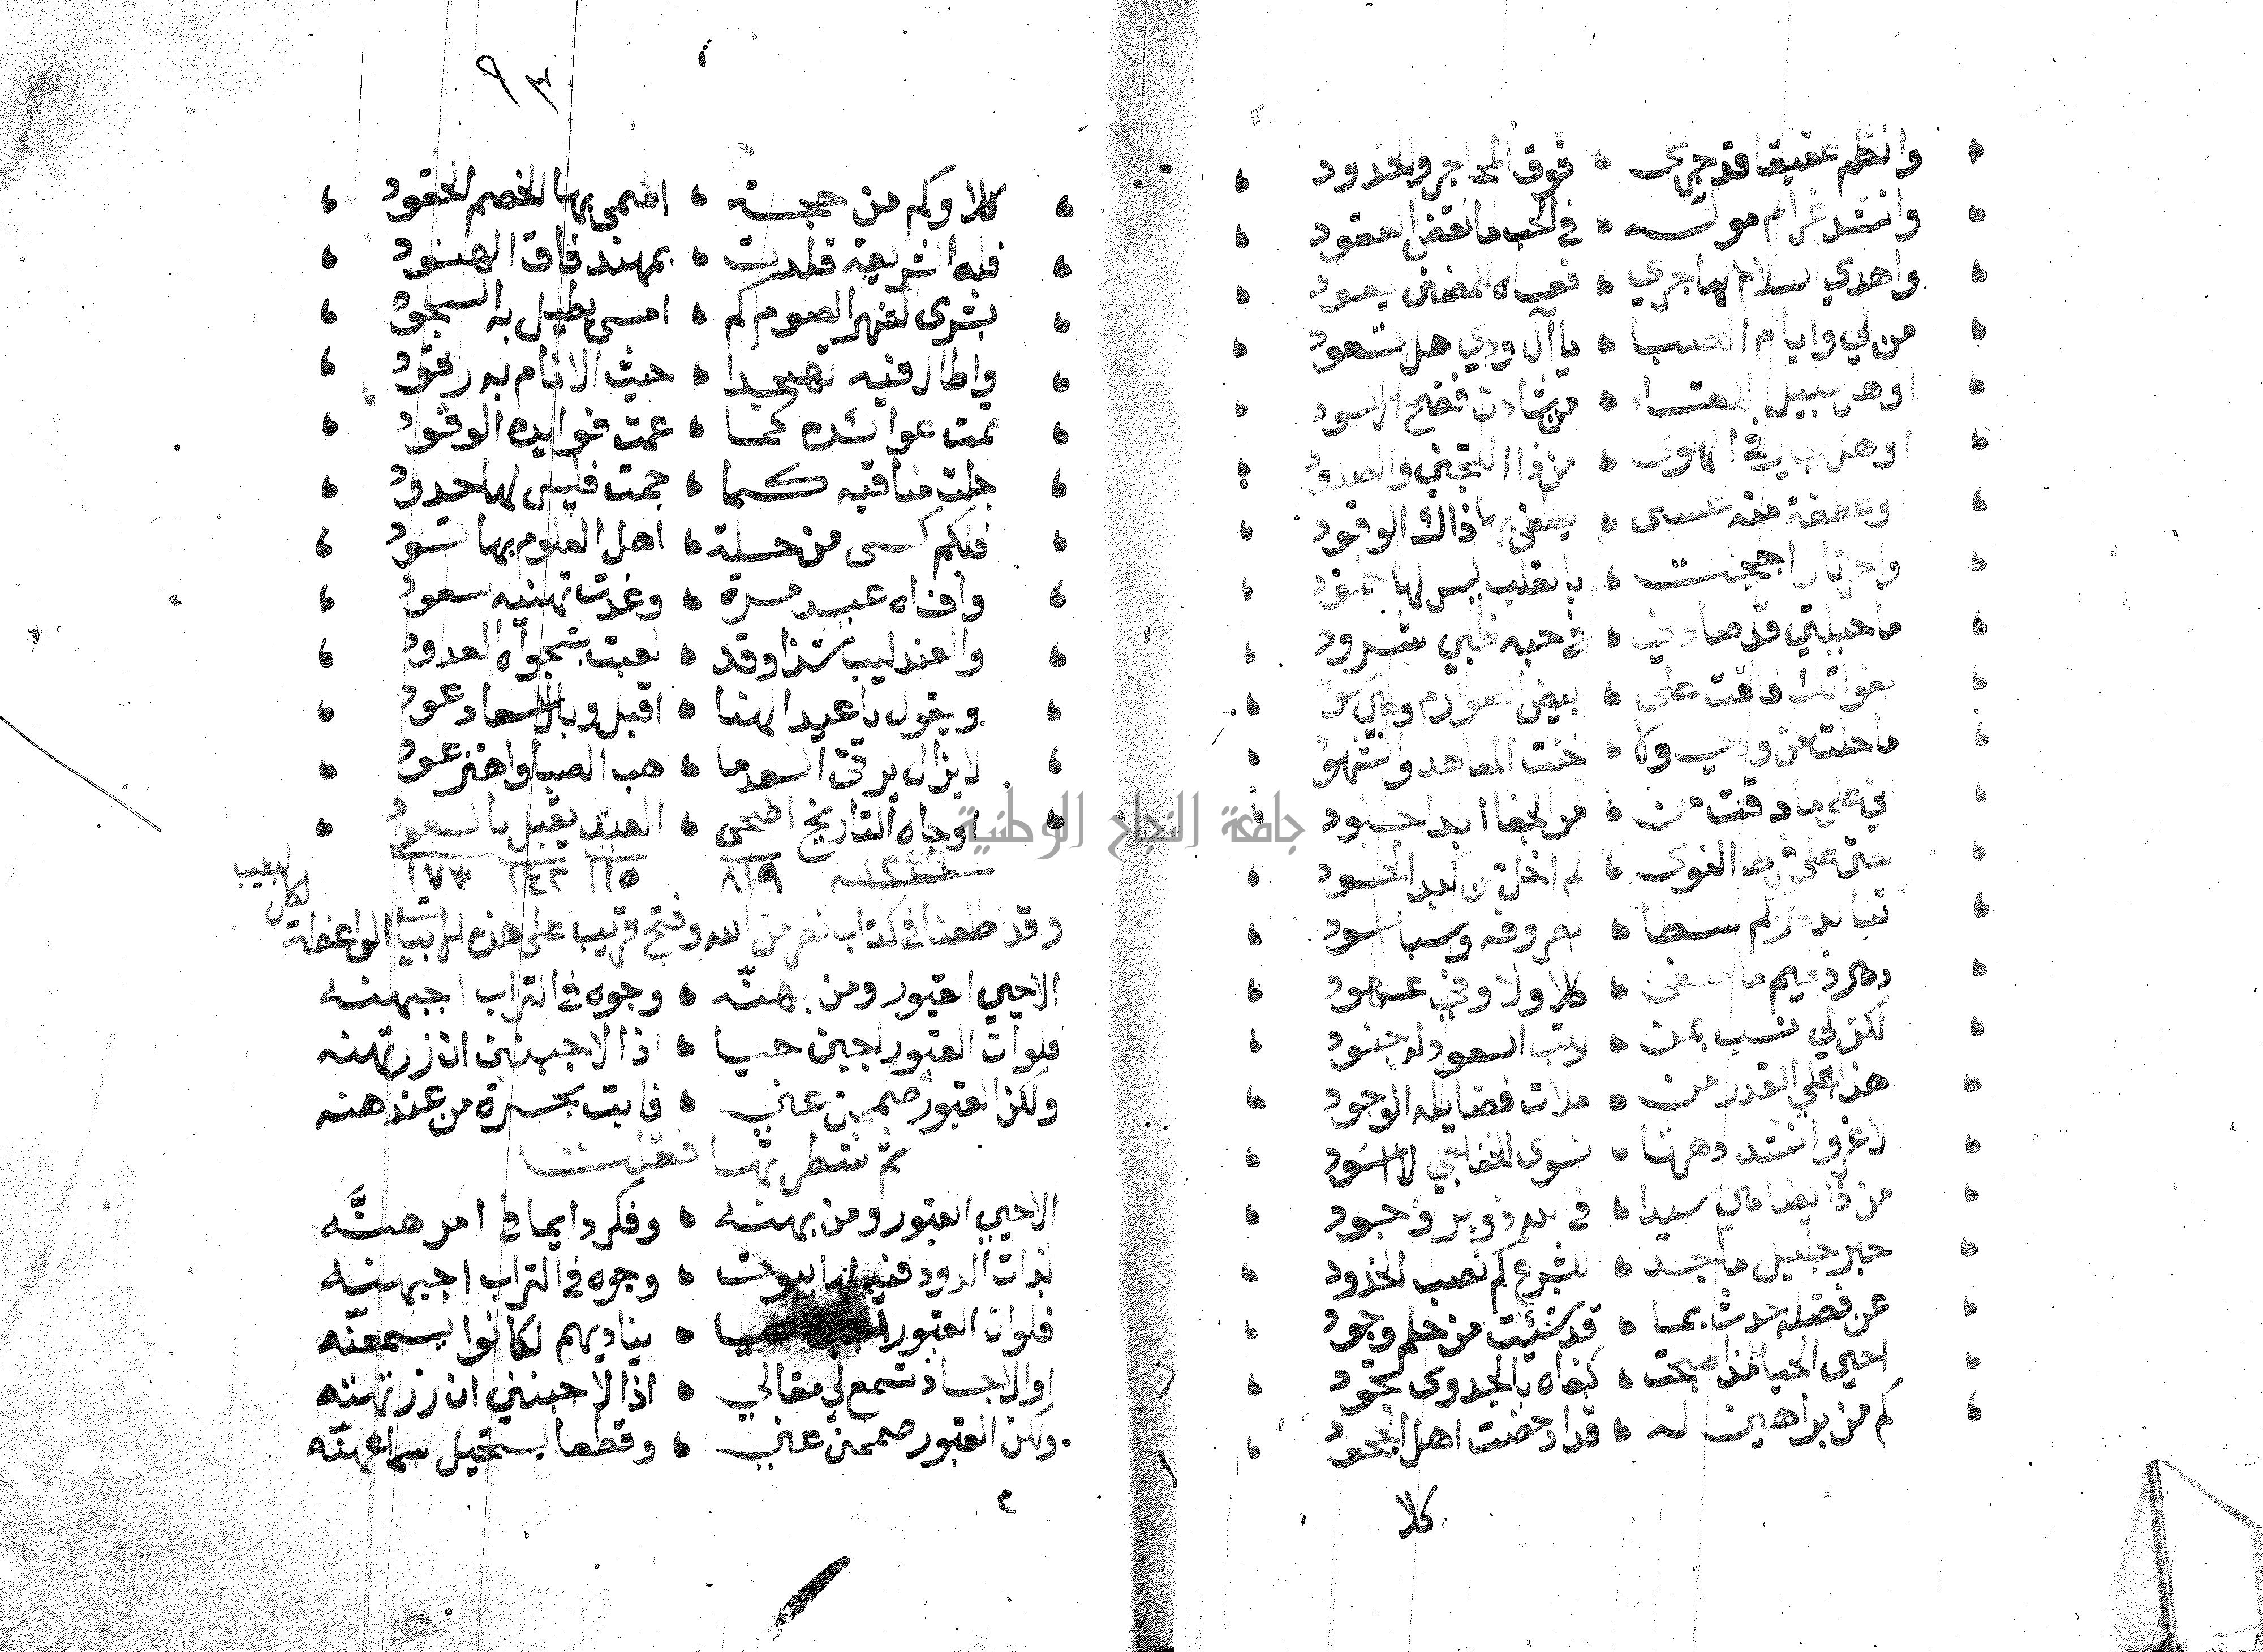 وانظم عقيقا قد جرى فوق المحاجر والخدود
وانشد غرام موله في الحب ما نقض العقود
واهدي سلام لهاجري فعساه للمضنى يعود
من لي وايام الصبا يا آل ودي هل تعود
او هل سبيل للقاء من شادن فضح الاسود
او هل مجير في الهوى من ذا التجني والصدود
وعطفة منه عسى يطفى بها ذاك الوقود
واحر نار اججت بالقلب ليس لها خمود
ما حيلتي قد صادني في حبه ظبي شرود
بعواتك فاقت على بيض الصوارم
ما حلت عن ودي ولا خنت المعاهد والشهود
من الجفا ابدا
حتى على النوى لم اخل من كيد الحسود
تبا لدهر كم سطا بصروفه وسبا اسود
دهر ذميم ما صفى كلا ولا وفي عهود
لكن لي نسب بمن رتب السعود له جنود
هذا علي القدر من ملات فضايله الوجود
لا غرو انشد دهرنا سوى الخفاجي لا اسود
من ذا يضاهي سيدا في ذو بر وجود
حبر جليل ماجد للشرع كم نصب الحدود
عن فضله حدث بما قد شئت من حلم وجود
احيى الحيا مذ اصبحت كفاه بالجدوى تجود
كم من براهين له قد ادحضت اهل الجحود
كلا
٩٣
كلا وكم من حجة اصمى بها الخصم الحقود
فله الشريعة قلدت بمهند فاق الهنود
بشرى لشهر الصوم كم امسى يطيل به السجود
واطال فيه تهجدا حيث الانام به رقود
تمت عوائده كما عمت فوايده الوفود
جلت مناقبه كما جمت فليس لها حدود
فلكم كسى من حلة اهل العلوم بها تسود
وافاه عيد مسرة وغدت تهنيه سعود
والعندليب شدا وقد لعبت بنجواه العدود
ويقول يا عيد الهنا اقبل وبالاسعاد عود
لا يزال يرقى السعد ما هب الصبا واهتز عود
او جاه التاريخ اضحى العيد يقبل بالسعود
٨١٩ ١١٥ ١٤٢ ١٧٣
وقد اطلعنا في كتاب نصر من الله وفتح قريب على هذه الابيات الواعظة
الاحيي القبور ومن بهنه وجوه في التراب اجبهنه
فلو ان القبور اجبن حيا اذا لاجبنني ان زرتهنه
ولكن القبور صممن عني فابت بحسرة من عند هنه
ثم شطرتها فقلت
الاحيي القبور ومن بهنه وفكر دايما في امر هنه
بذات الدود فيها بيوت وجوه في التراب اجبهنه
فلو ان القبور حيا يناديهم لكانوا يسمعنه
او الاجساد تسمع لي مقالي اذا لاجبنني ان زرتهنه
ولكن القبور صممن عني وقطعا يستحيل سماعهنه
جامعة النجاح الوطنية